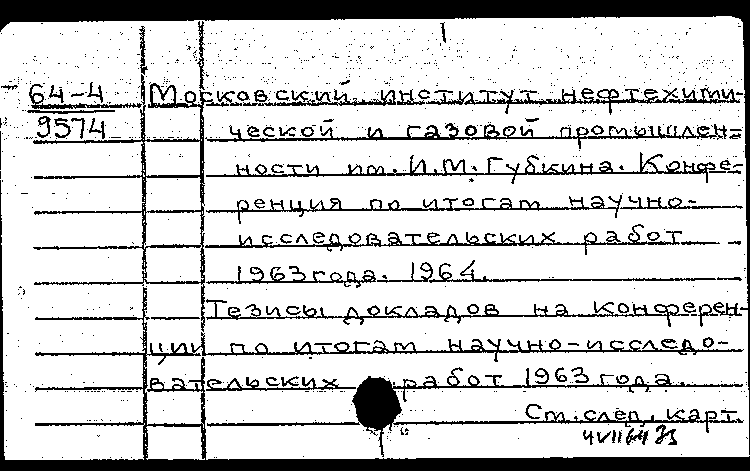 64-4 Московский институт нефтехими-
9574 ческой и газовой промышлен=
ности им. И.М. Губкина. Конфе-
ренция по итогам научно-
исследовательских работ
1963 года. 1964.
Тезисы докладов на конферен-
ции по итогам научно-исследо-
вательских работ 1963 года.
См. след. карт.